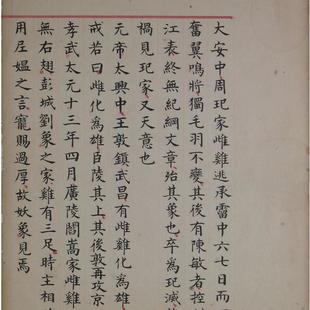 大安中周玘家雌雞逃承霤中六七日而
奮翼鳴將獨毛羽不變其後有陳敏者控
江表終無紀綱文章殆其象也卒為玘滅
禍見玘家又天意也
元帝太興中王敦鎮武昌有雌雞化為雄
戒若曰雌化為雄臣陵其上其後敦再攻京
孝武太元十三年四月廣陵閻嵩家雌雞
無右翅彭城劉象之家雞有三足時主相
用尼媼之言寵賜過厚故妖象見焉